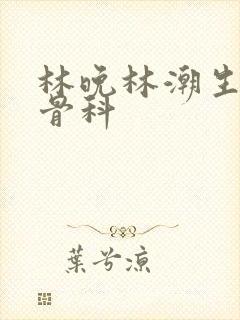 林晚林潮生
骨科
葉兮涼